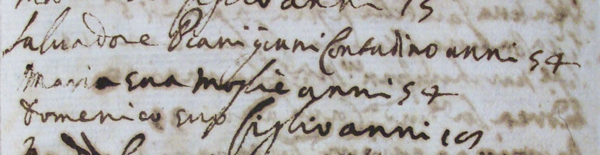 figlio anni 15
Salvadore Contadino anni 54
Maria sua moglie anni 54
Domenico suo figlio anni